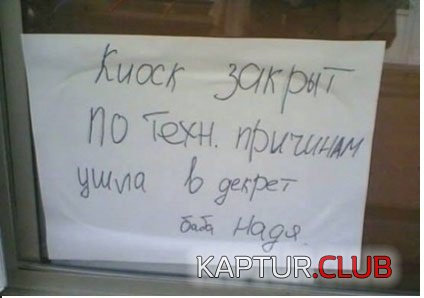 Киоск закрыт
по техн. причинам
ушла в декрет
баба Надя.
KAPTUR.CLUB